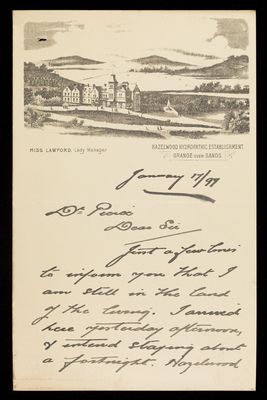 MISS LAWFORD, Lady Manager
HAZELWOOD HYDROPATHIC ESTABLISHMENT
GRANGE OVER SANDS
January 17/99
Dr Peirce
Dear Sir
Just a few lines
to inform you that I
am still in the land
of the living. I arrived
here yesterday afternoon,
& intend staying about
a fortnight. Hazelwood